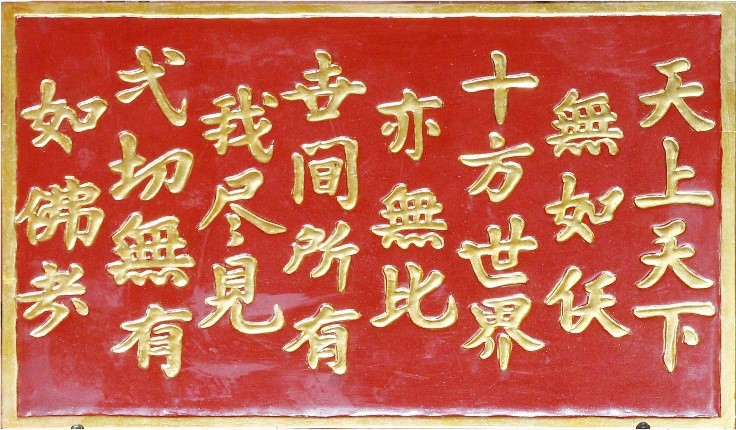 天上天下
無如仸
十方世界
亦無比
卋間所有
我尽見
弌切無有
如佛者